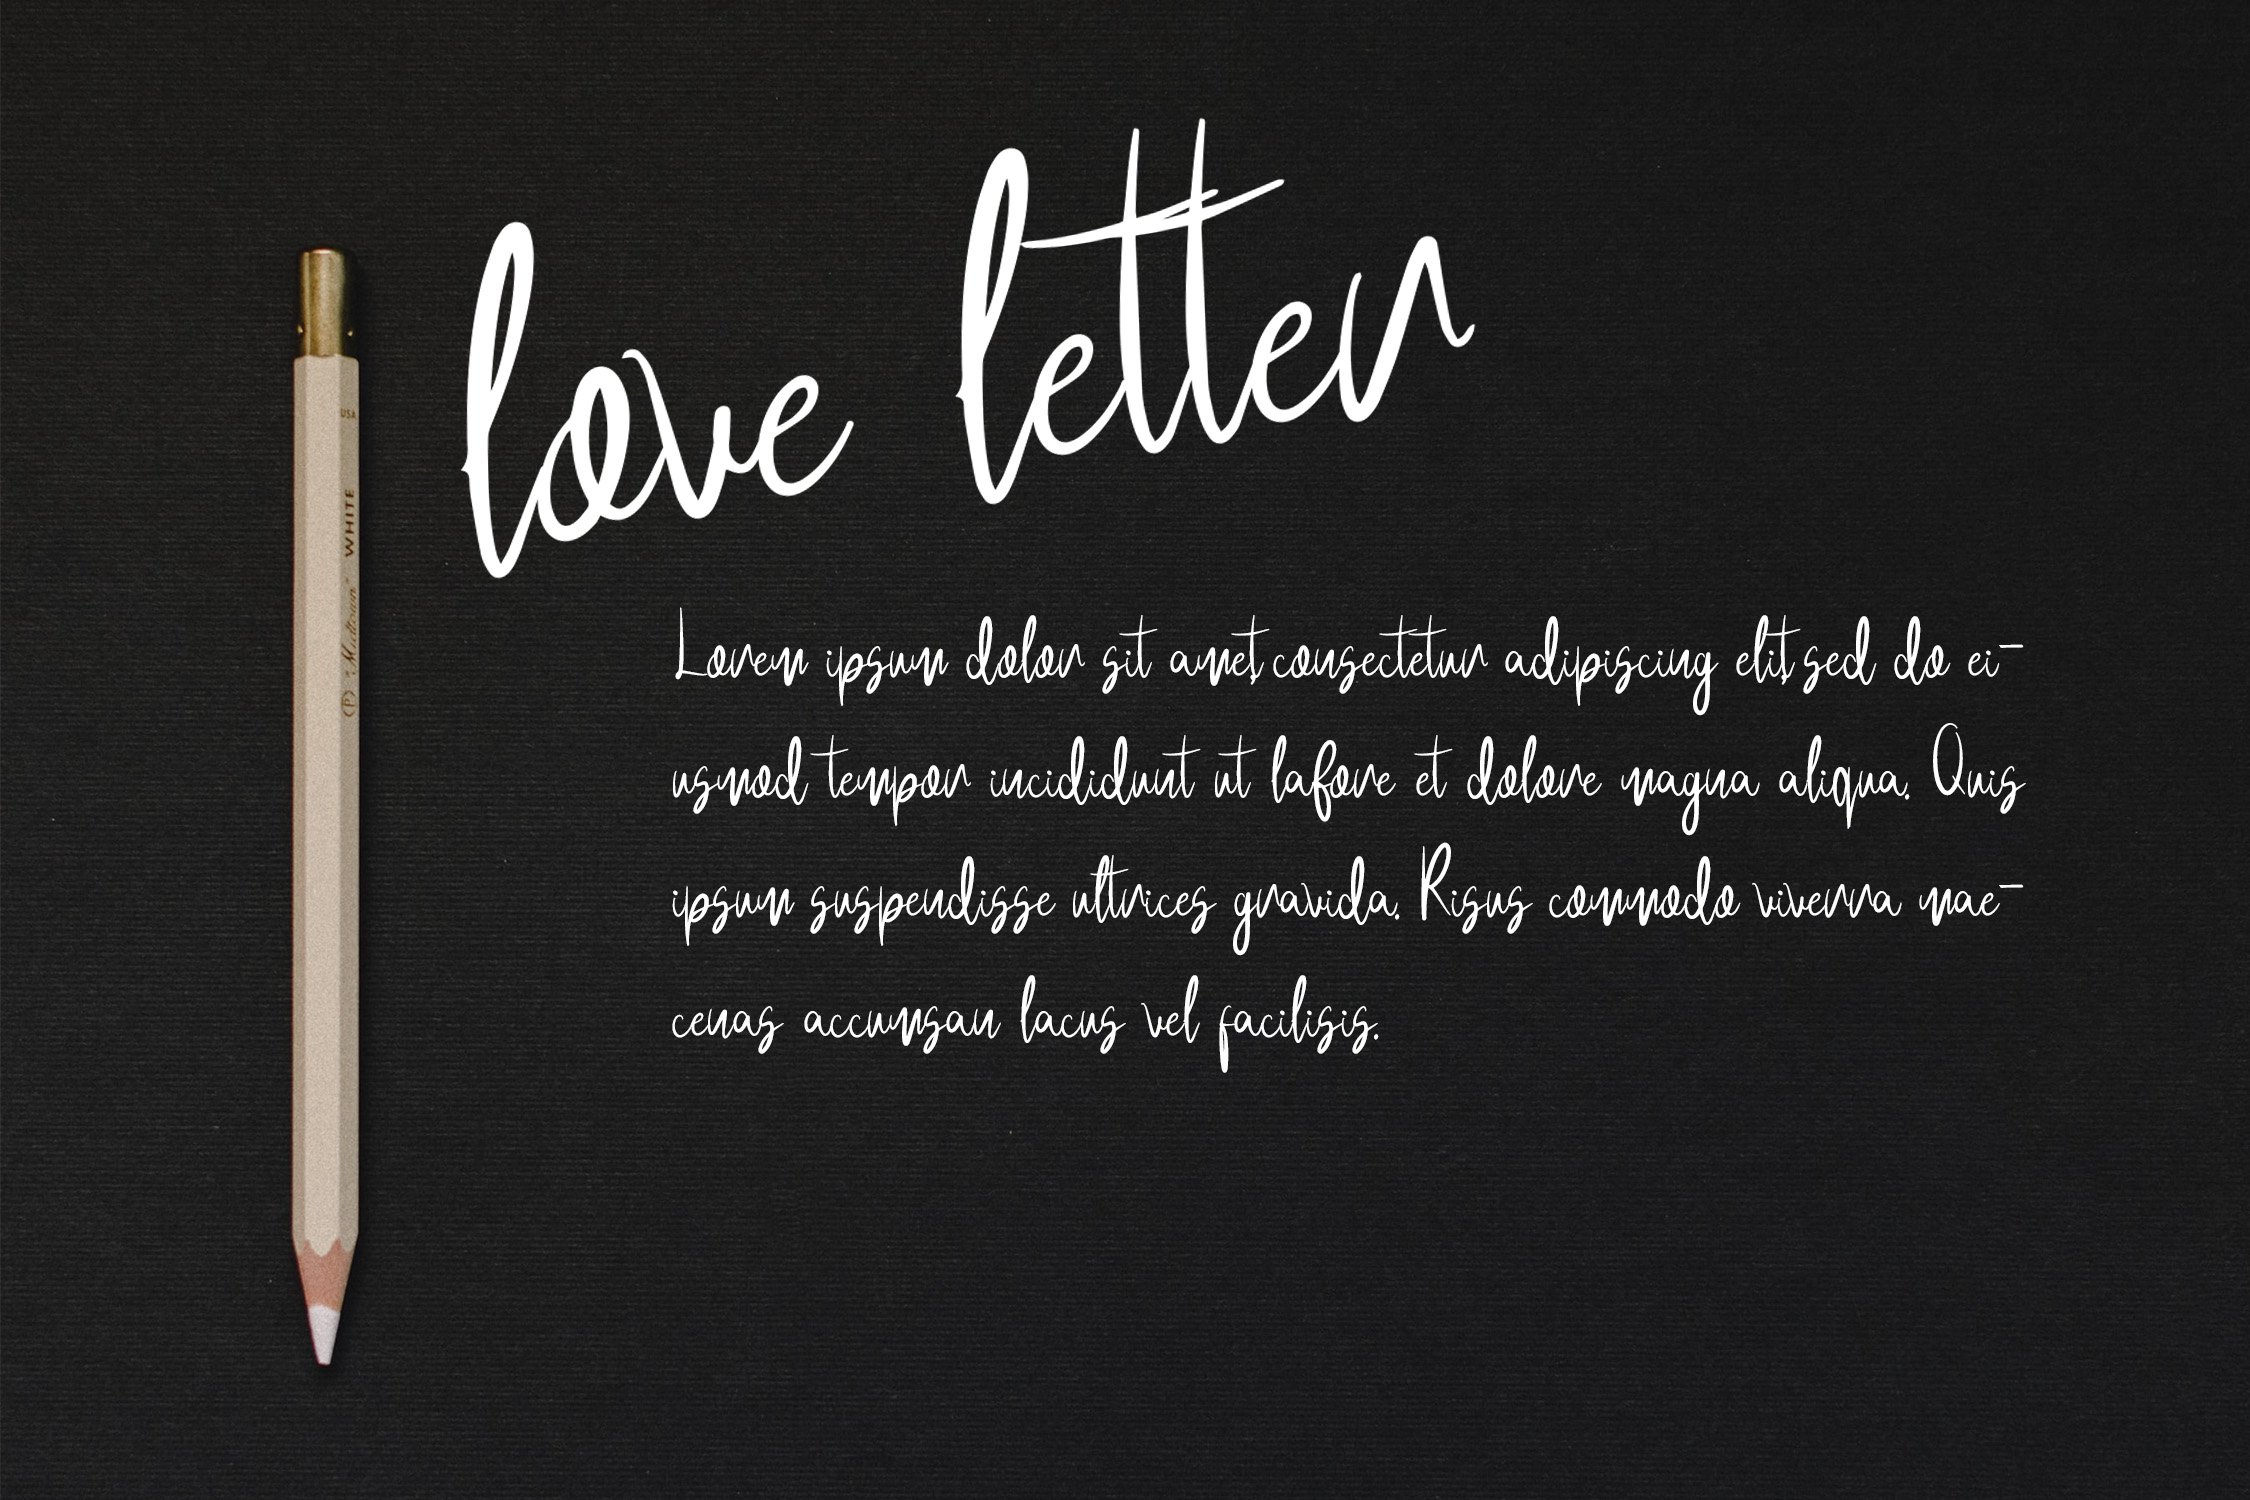 love letter
USA
WHITE
Lorem ipsum dolor sit amet, consectetur adipiscing elit, sed do ei-
usmod tempor incididunt ut labore et dolore magna aliqua. Quis
ipsum suspendisse ultrices gravida. Risus commodo viverra mae-
cenas accumsan lacus vel facilisis.